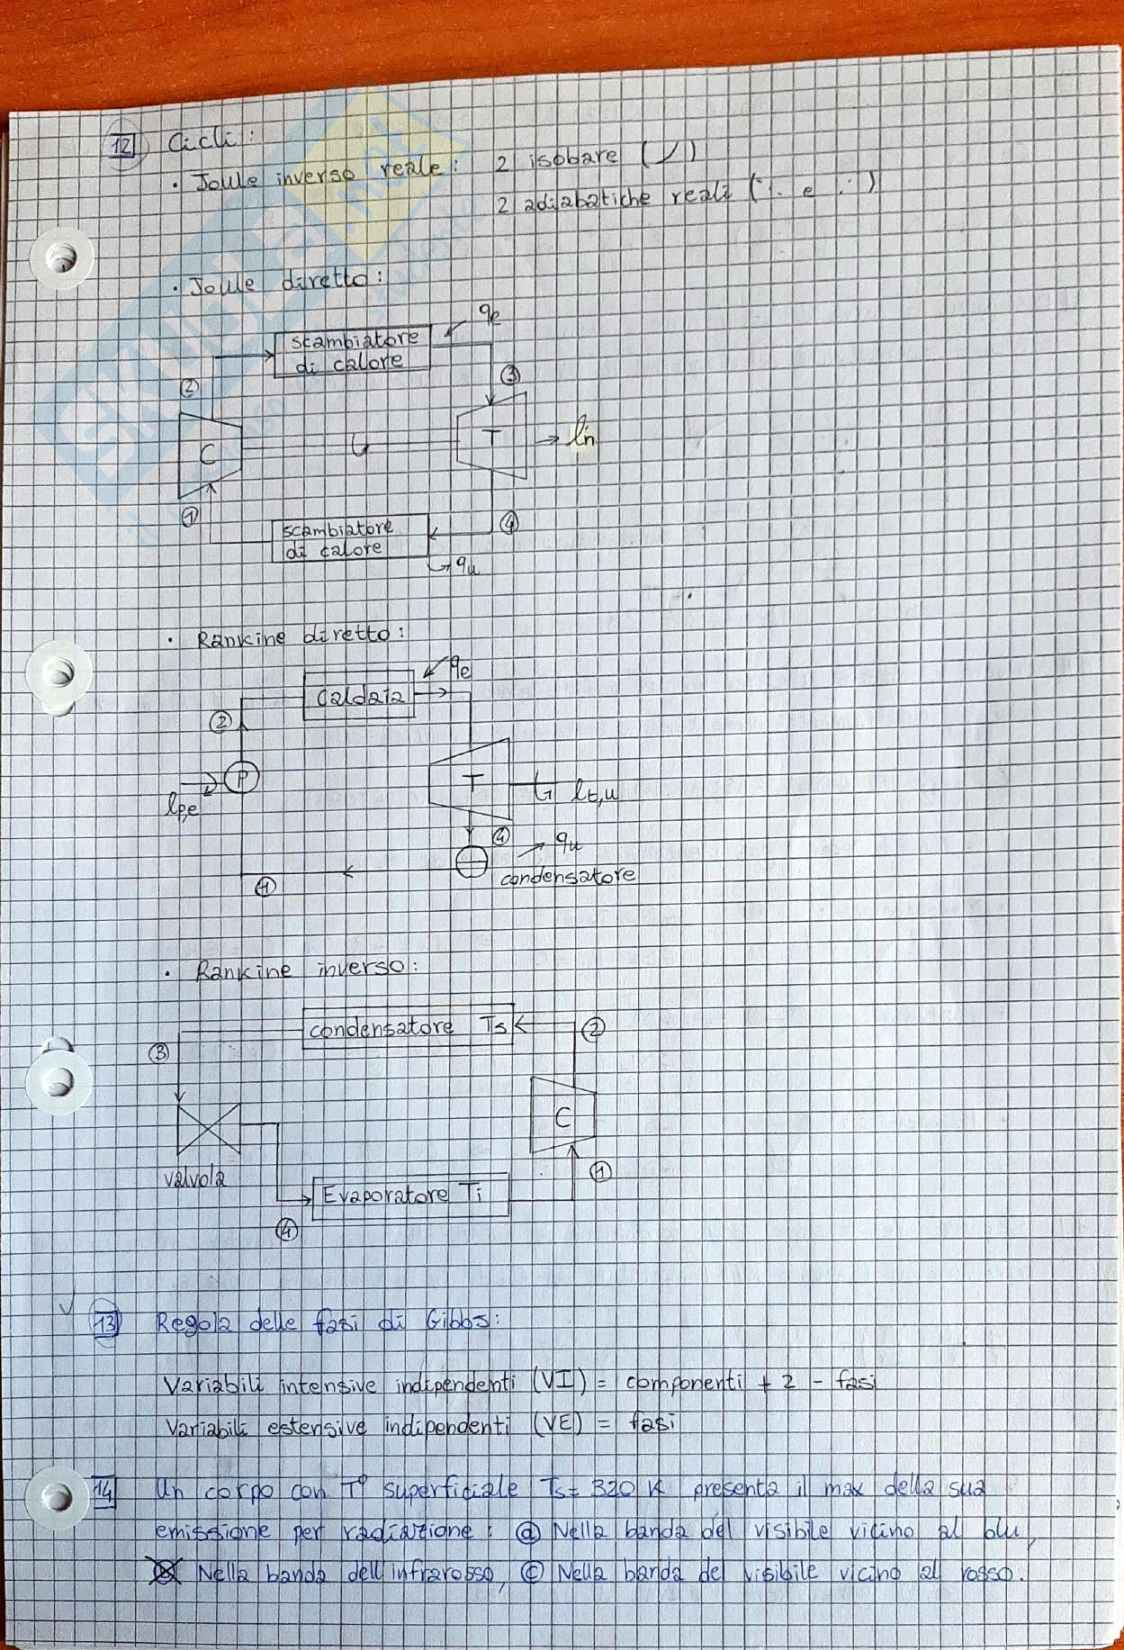 12 Cicli:
· Joule inverso reale: 2 isobare ( )
2 adiabatiche reali ( e )
· Joule diretto:
qe
scambiatore
di calore
2
3
C
T
ln
1
4
scambiatore
di calore
qu
· Rankine diretto:
qe
caldaia
2
P
T
lp,e
lt,u
4
qu
condensatore
1
· Rankine inverso:
condensatore Ts
2
3
C
valvola
1
Evaporatore Ti
4
13 Regola delle fasi di Gibbs:
Variabili intensive indipendenti (VI) = componenti + 2 - fasi
Variabili estensive indipendenti (VE) = fasi
14 Un corpo con T° superficiale Ts= 320 K presenta il max della sua
emissione per radiazione: a Nella banda del visibile vicino al blu,
Nella banda dell'infrarosso, c Nella banda del visibile vicino al rosso.